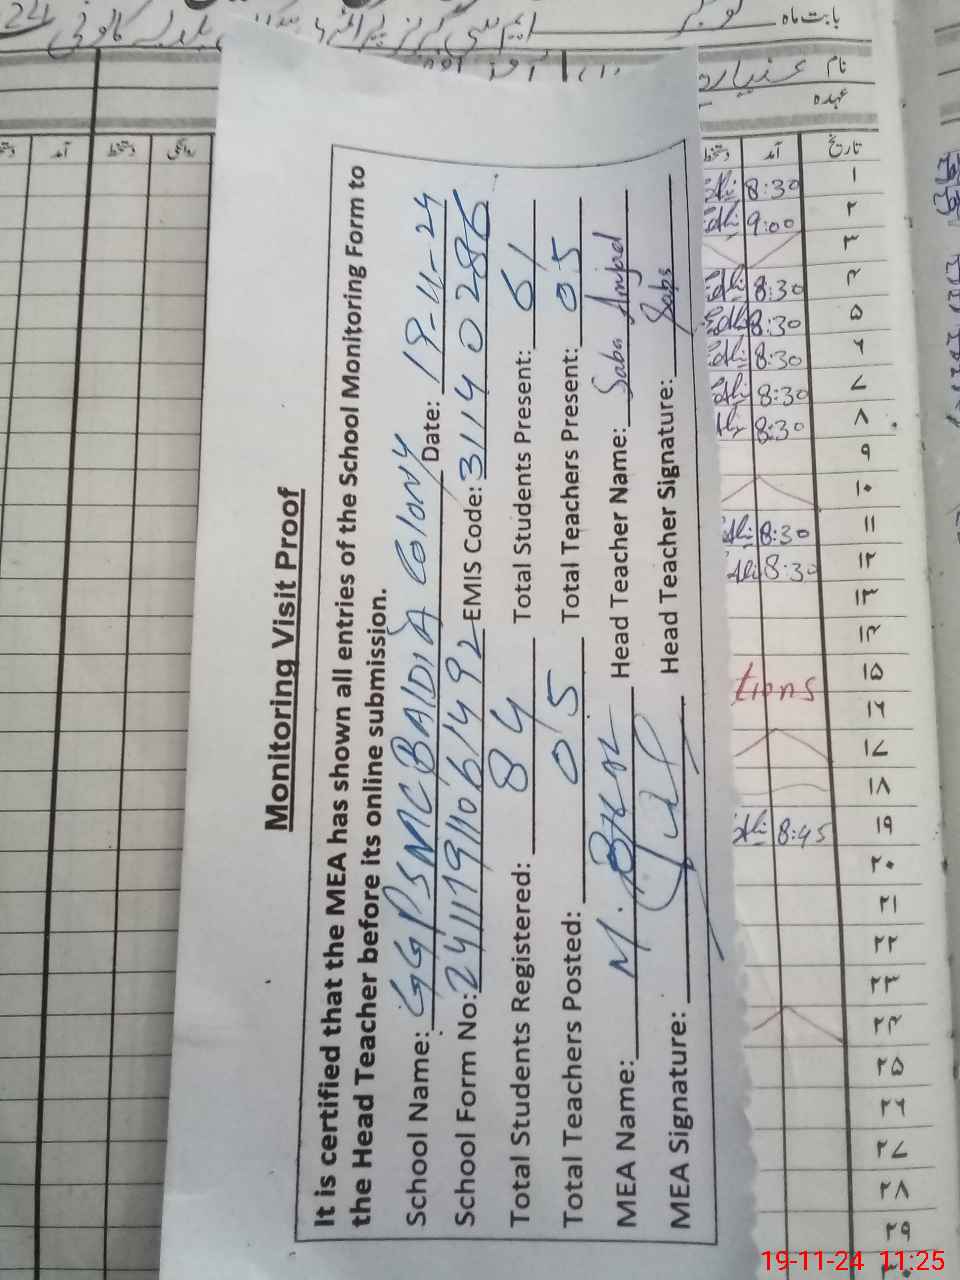 Monitoring Visit Proof
It is certified that the MEA has shown all entries of the School Monitoring Form to
the Head Teacher before its online submission.
School Name: GGPS MC BALDIA COLONY Date: 19-11-24
School Form No: 24111911061492 EMIS Code: 31140286
Total Students Registered: 84 Total Students Present: 61
Total Teachers Posted: 05 Total Teachers Present: 05
MEA Name: M. Head Teacher Name: Saba Amjad
MEA Signature: Head Teacher Signature: Saba
بابت ماہ نومبر
نام
عہدہ
تاریخ آمد دستخط
روانگی دستخط آمد
۱ 8:30
۲ 9:00
۳
۴ 8:30
۵ 8:30
۶ 8:30
۷ 8:30
۸ 8:30
۹
۱۰
۱۱ 8:30
۱۲ 8:30
۱۳
۱۴
۱۵ tions
۱۶
۱۷
۱۸
۱۹ 8:45
۲۰
۲۱
۲۲
۲۳
۲۴
۲۵
۲۶
۲۷
۲۸
۲۹
۳۰
19-11-24 11:25